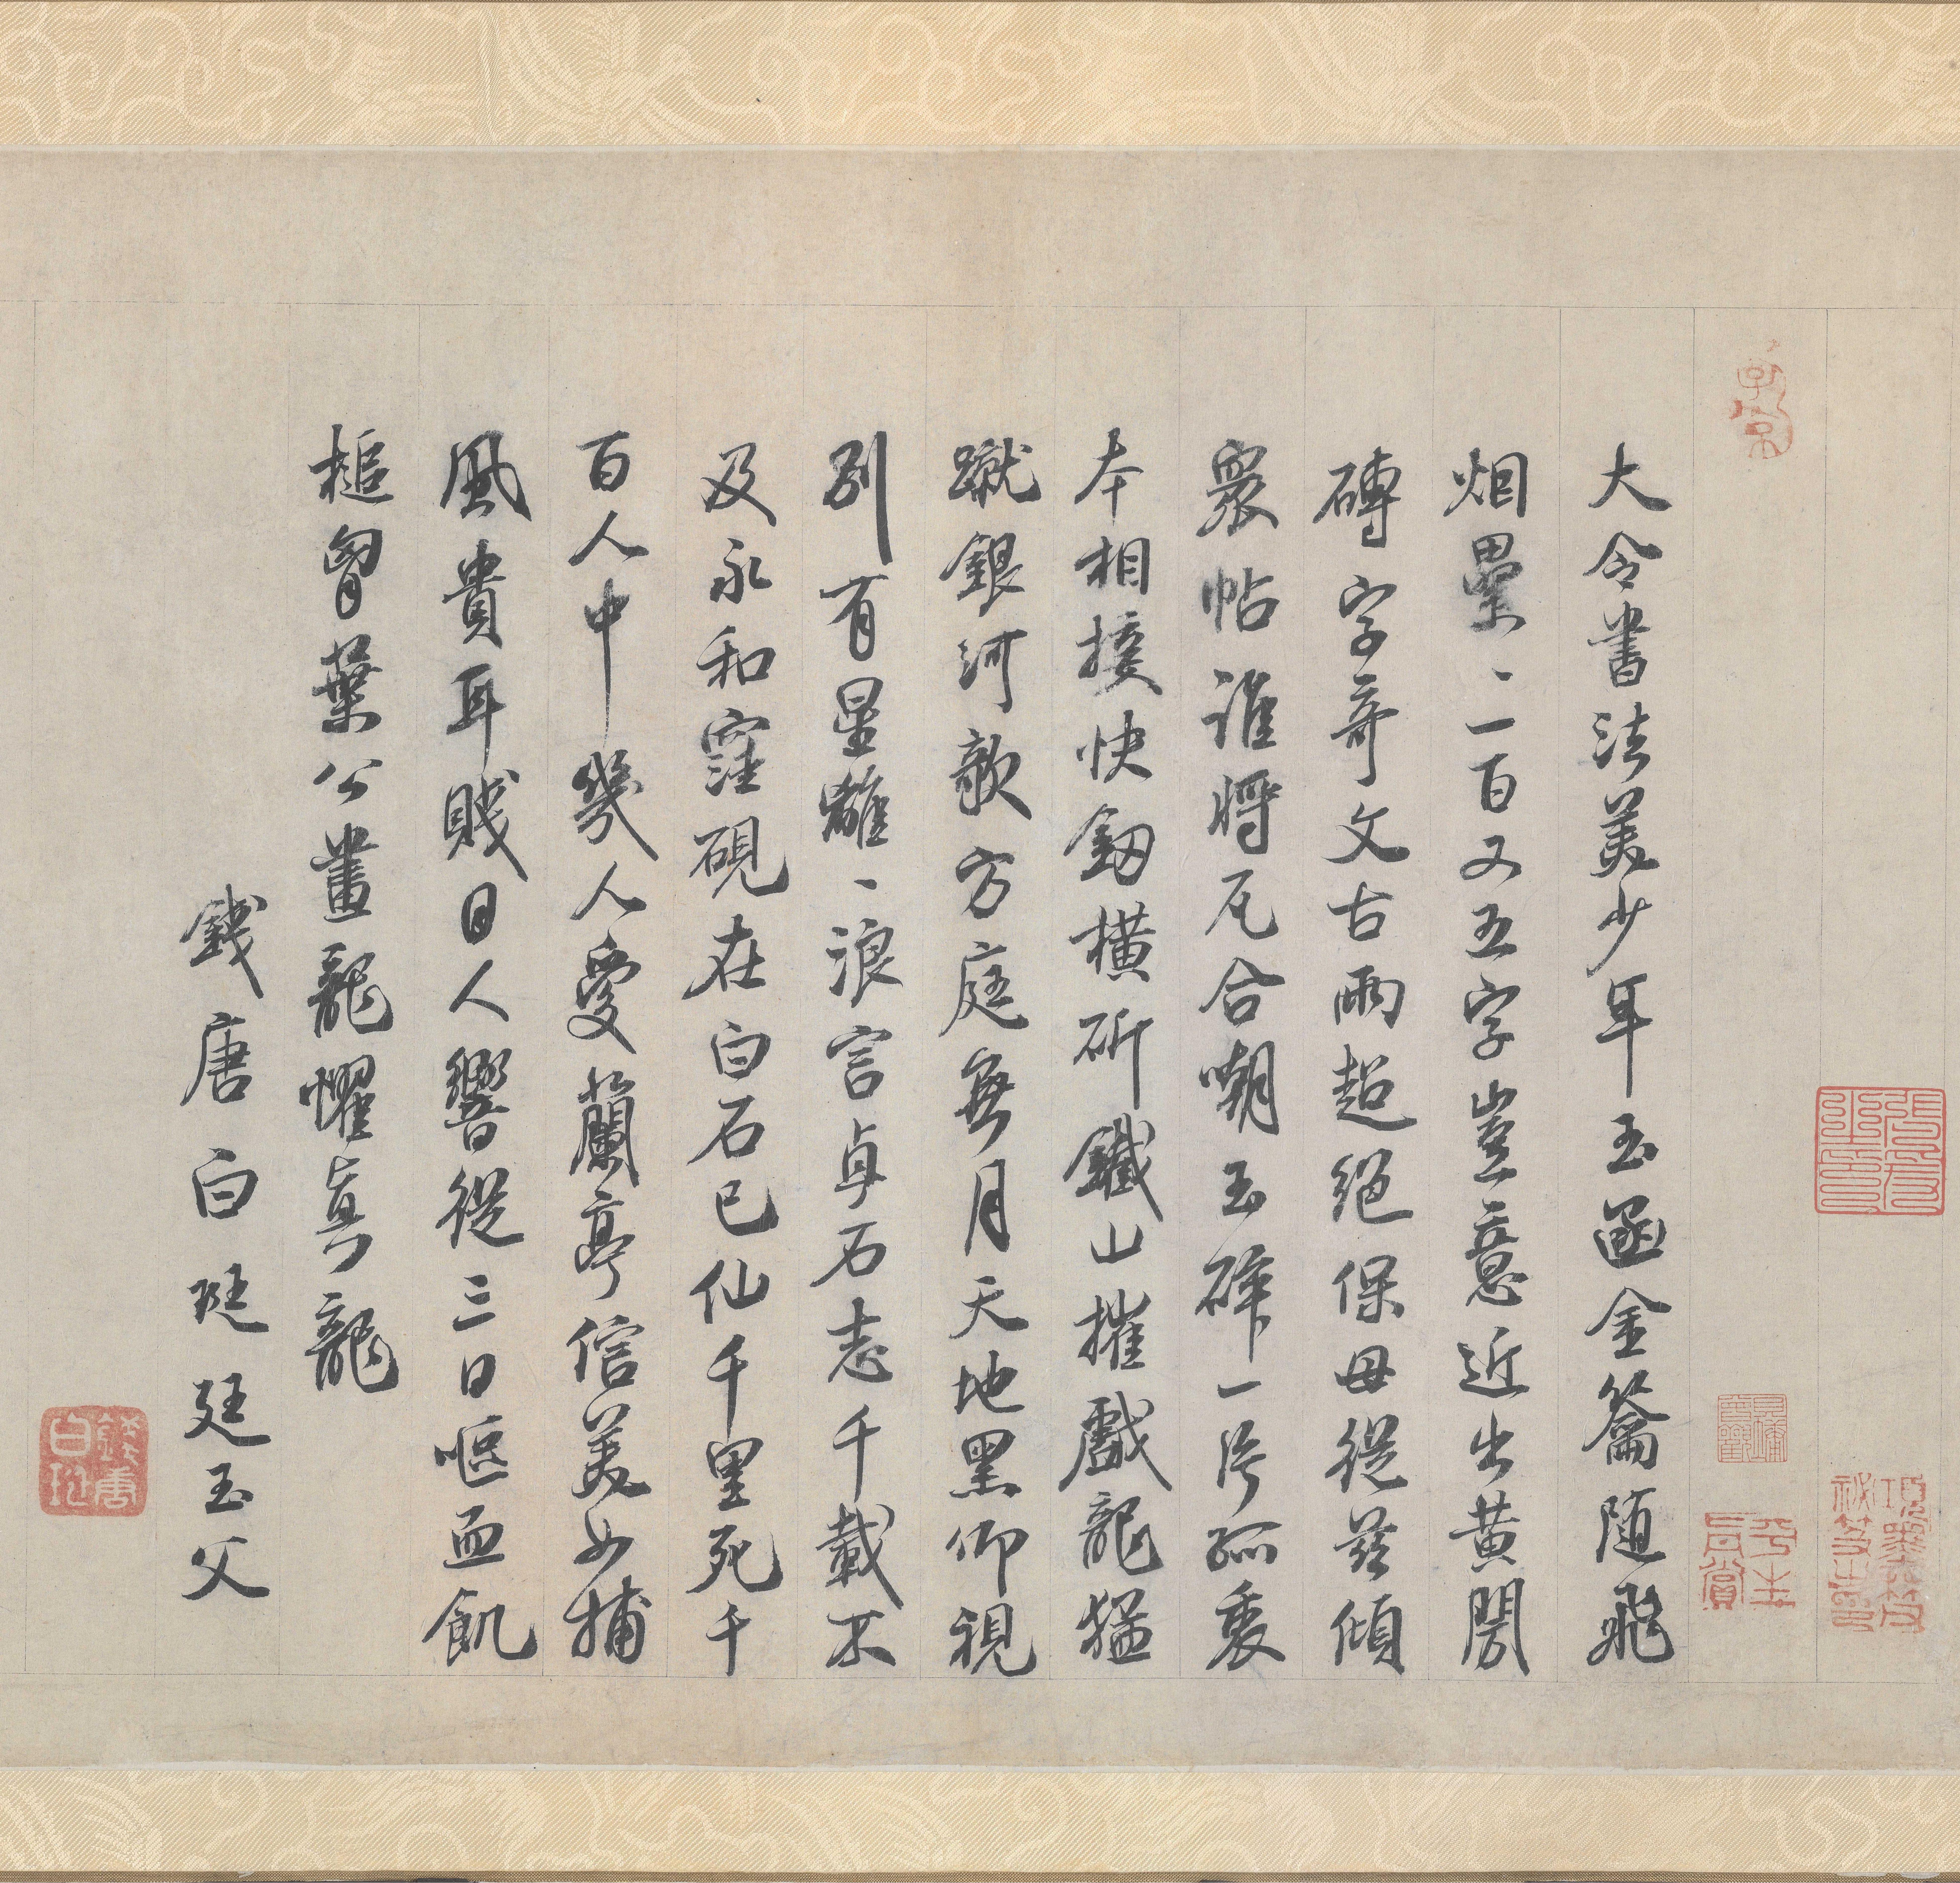 大令書法美少年玉函金籥随飛
烟壘〻一百又五字豈意近出黄閍
磚字奇文古雨超絕保母從茲傾
衆帖誰將瓦合嘲玉碎一片孤裹
本相接快劔横斫鐵山摧戲龍猛
蹴銀河歌方庭無月天地黑仰視
別有星離〻浪言貞石志千載不
及永和窪硯在白石已仙千里死千
百人中幾人愛蘭亭信美女捕
風貴耳賤目人響從三日嘔血飢
槌胷葉公畫龍懼真龍
錢唐白珽廷玉父
錢唐白珽